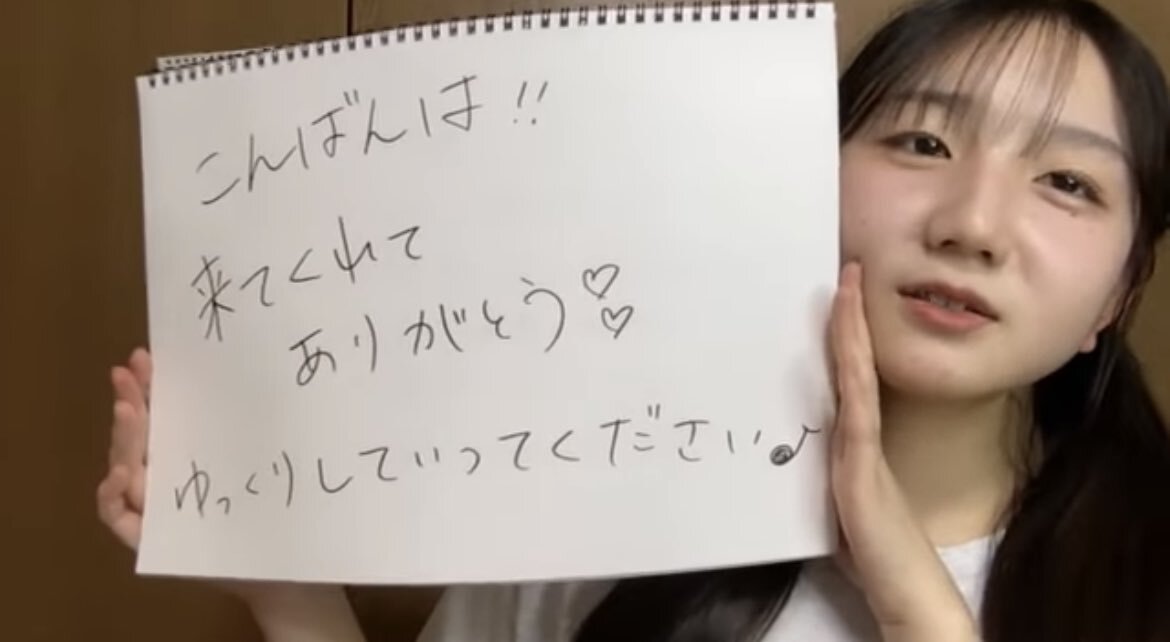 こんばんは!!
来てくれて
ありがとう♡♡
ゆっくりしていってください♪